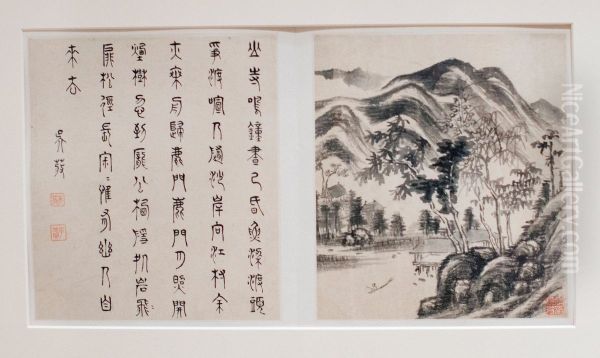 山寺鳴鐘晝已昏漁梁渡頭
爭渡喧人隨沙岸向江村余
亦乘舟歸鹿門鹿門月照開
煙樹忽到龐公棲隱処岩
扉松徑長寂寥惟有幽人自
來去
吳
NiceArtGallery.com